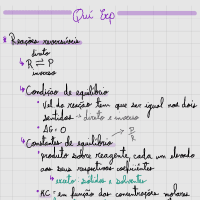 Qui Exp
Reações reversíveis
direto
R ⇌ P
inverso
↳ Condição de equilíbrio
• Vel da reação tem que ser igual nos dois
sentidos → direto e inverso
• ΔG = 0
↳ Constantes de equilíbrio → P/R
• produto sobre reagente, cada um elevado
aos seus respectivos coeficientes
↳ exceto sólidos e solventes
• KC = em função das concentrações molares